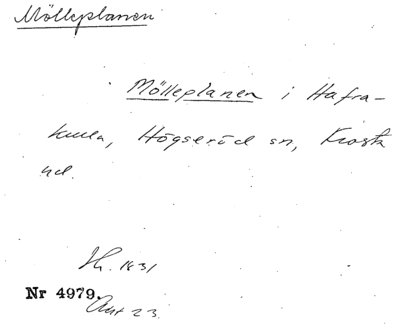 Mölleplanen
Mölleplanen i Hafra-
kulla, Högseröd sn, Frosta
hd.
Sk. 1831
Nr 4979.
Akt 23.